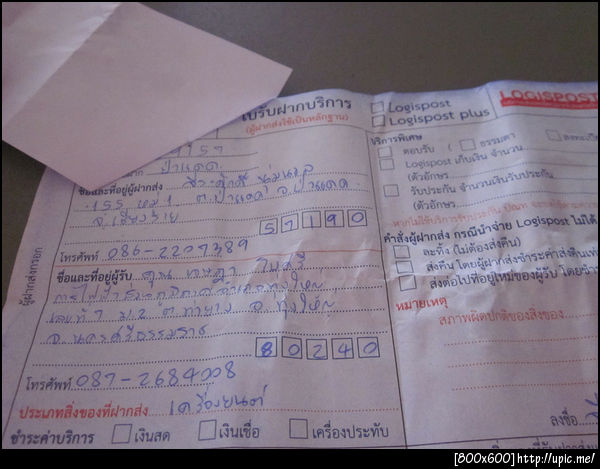 ใบรับฝากบริการ
(ผู้ฝากส่งใช้เป็นหลักฐาน)
ป่าแดด
ชื่อและที่อยู่ผู้ฝากส่ง
155 หมู่ 1 ต.ป่าแดด อ.ป่าแดด
จ.เชียงราย
57190
โทรศัพท์ 086-2207389
ชื่อและที่อยู่ผู้รับ คุณ
เลขที่ 7 ม.2 ต.ท่ายาง อ.ทุ่งใหญ่
จ.นครศรีธรรมราช
80240
โทรศัพท์ 087-2684008
ประเภทสิ่งของที่ฝากส่ง เครื่องยนต์
ชำระค่าบริการ เงินสด เงินเชื่อ เครื่องประทับ
ผู้ฝากส่งกรอก
Logispost
Logispost plus
LOGISPOST
บริการพิเศษ
ตอบรับ ( ธรรมดา
Logispost เก็บเงิน จำนวน
(ตัวอักษร
รับประกัน จำนวนเงินรับประกัน
(ตัวอักษร
คำสั่งผู้ฝากส่ง กรณีนำจ่าย Logispost ไม่ได้
ละทิ้ง (ไม่ต้องส่งคืน)
ส่งคืน โดยผู้ฝากส่งชำระค่าส่งคืน
ส่งต่อไปที่อยู่ใหม่ของผู้รับ
หมายเหตุ
สภาพผิดปกติของสิ่งของ
ลงชื่อ
[800x600]http://upic.me/